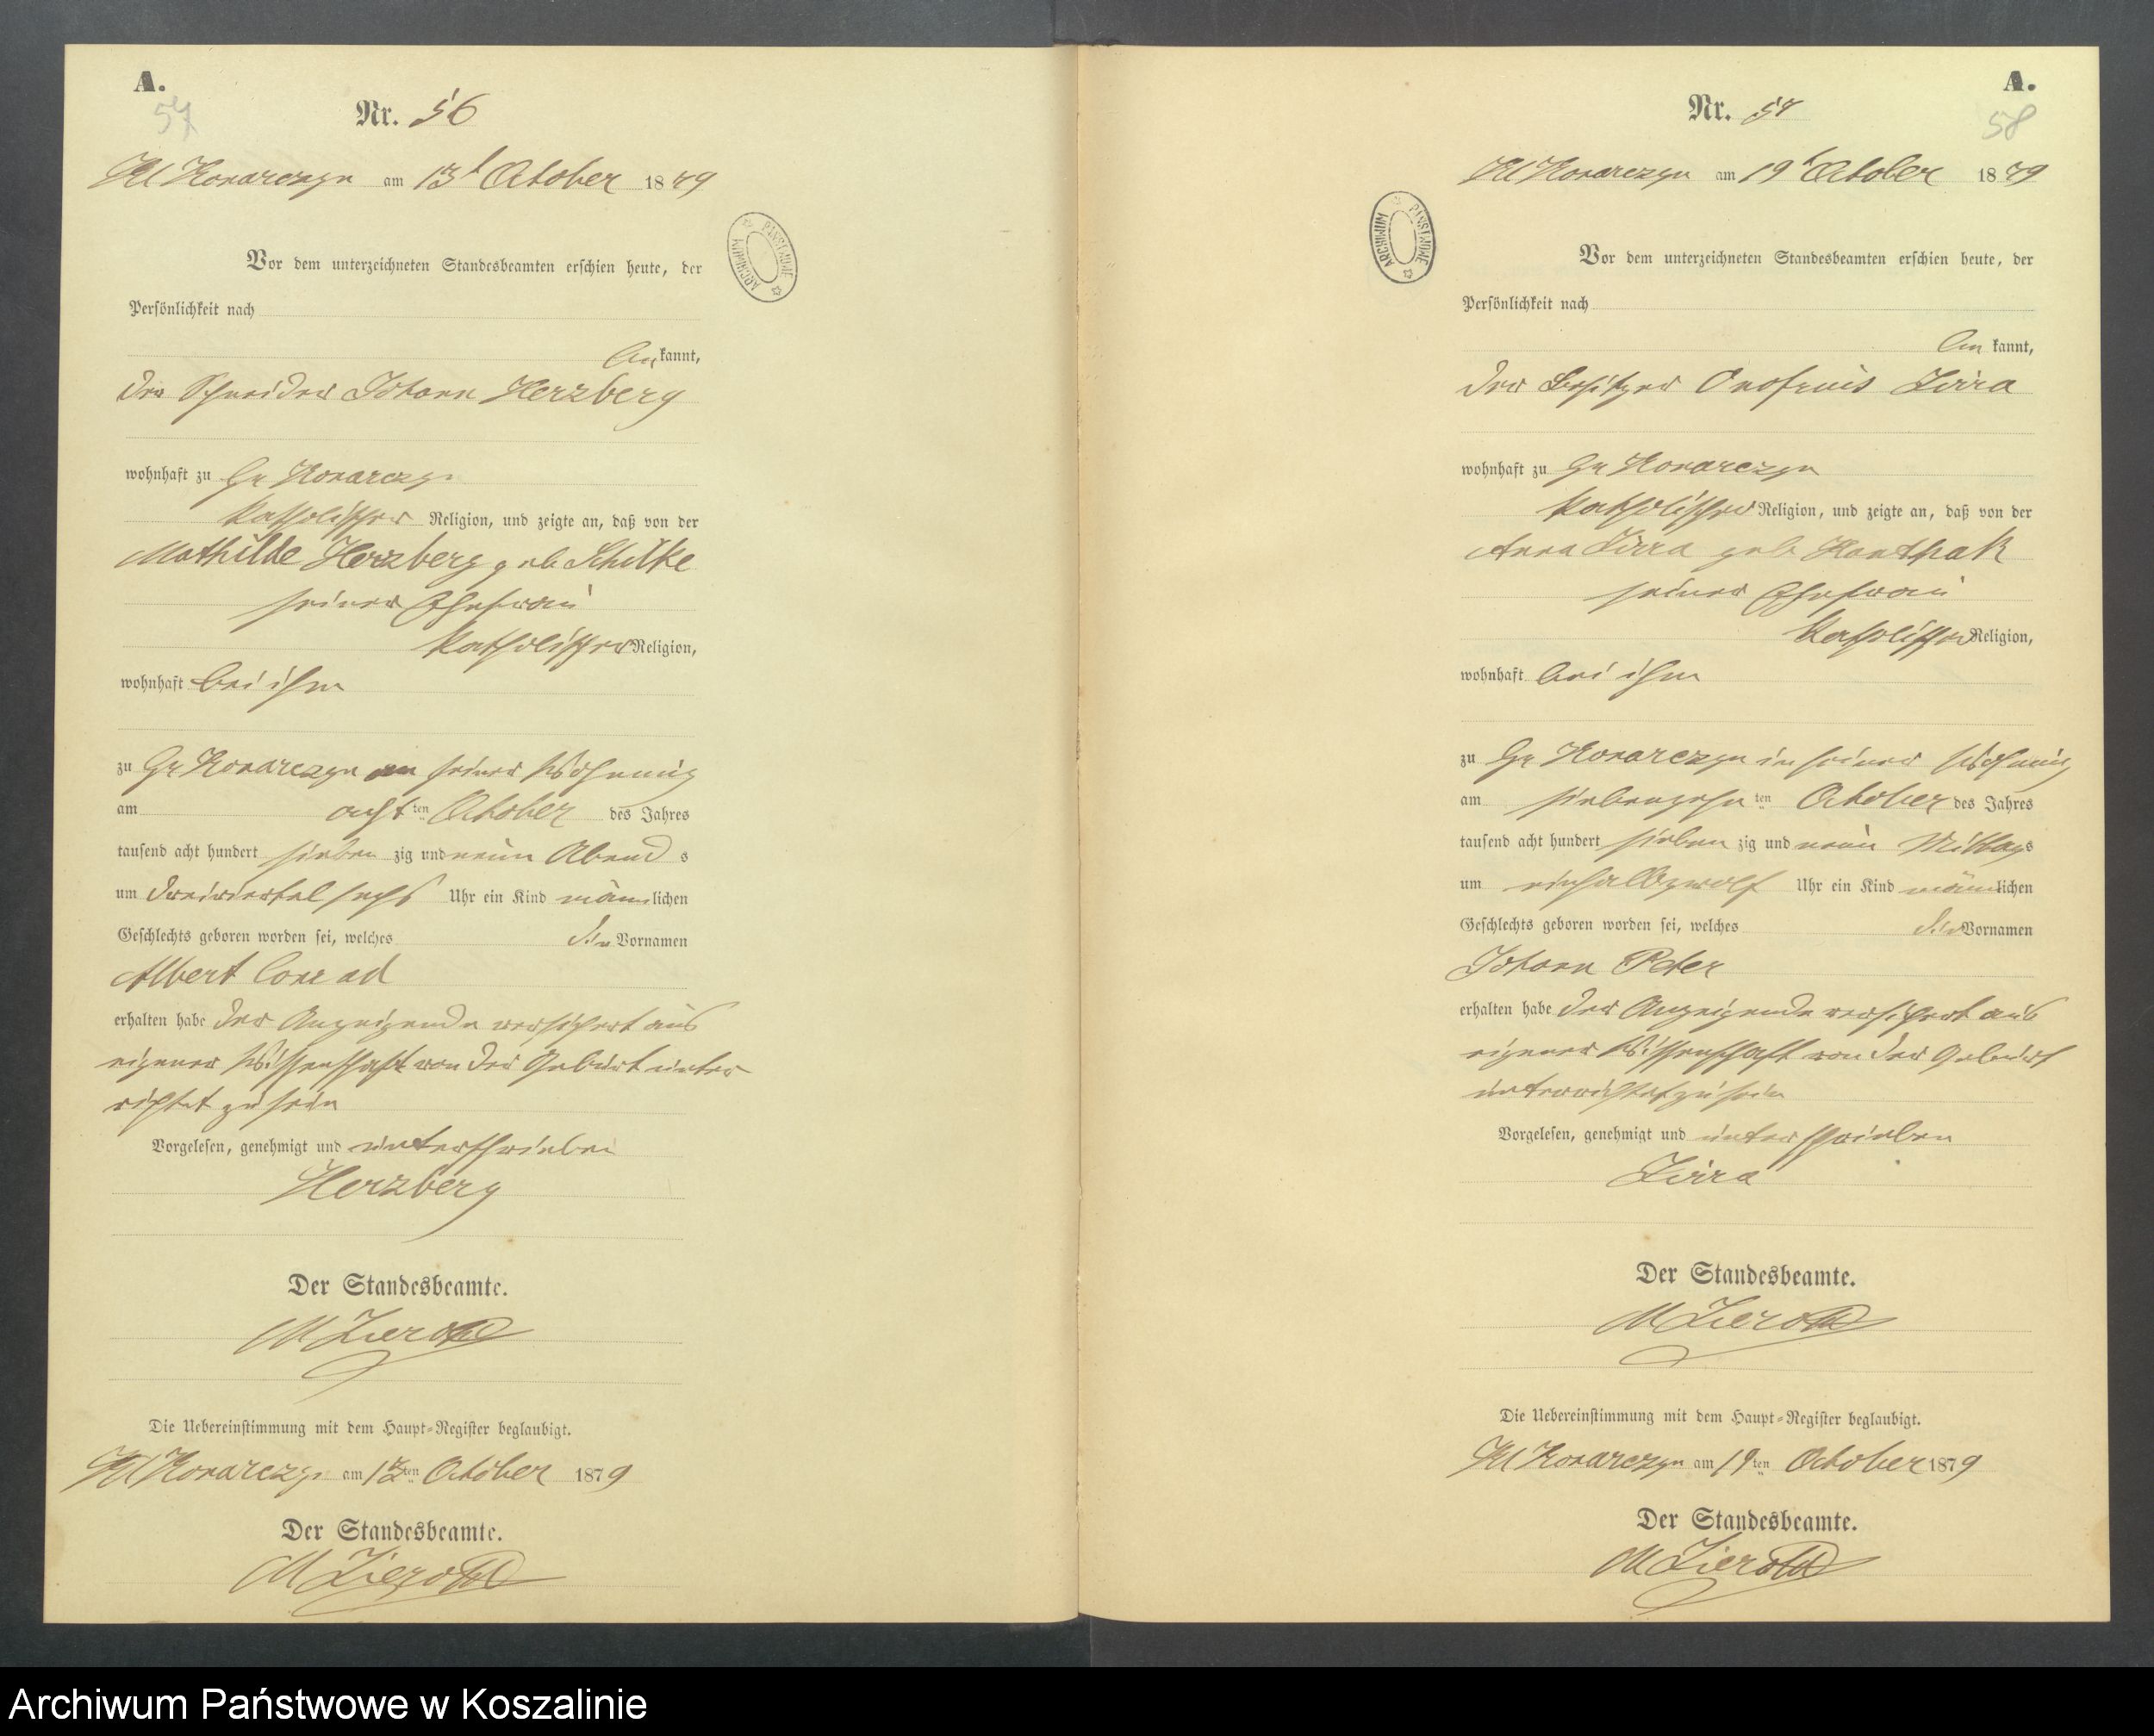 A.
57
Nr. 56
Kl Konarczyn am 13t October 1879
Vor dem unterzeichneten Standesbeamten erschien heute, der
Persönlichkeit nach
kannt,
der Schneider Johann Herzberg
wohnhaft zu Gr Konarczyn
katholischer Religion, und zeigte an, daß von der
Mathilde Herzberg geb Schilke
seiner Ehefrau
katholischer Religion,
wohnhaft bei ihm
zu Gr Konarczyn in seiner Wohnung
am acht ten October des Jahres
tausend acht hundert sieben zig und neun Abend s
um dreiviertel sechs Uhr ein Kind männlichen
Geschlechts geboren worden sei, welches die Vornamen
Albert Conrad
erhalten habe der Anzeigende versichert aus
eigener Wissenschaft von der Geburt unter
richtet zu sein
Vorgelesen, genehmigt und unterschrieben
Herzberg
Der Standesbeamte.
Die Uebereinstimmung mit dem Haupt-Register beglaubigt.
Kl Konarczyn am 13ten October 1879
Der Standesbeamte.
ARCHIWUM PAŃSTWOWE
A.
58
Nr. 57
Kl Konarczyn am 19t October 1879
Vor dem unterzeichneten Standesbeamten erschien heute, der
Persönlichkeit nach
kannt,
der Besitzer Onofrius
wohnhaft zu Gr Konarczyn
katholischer Religion, und zeigte an, daß von der
Anna geb
seiner Ehefrau
katholischer Religion,
wohnhaft bei ihm
zu Gr Konarczyn in seiner Wohnung
am siebenzehn ten October des Jahres
tausend acht hundert sieben zig und neun Mittags
um einhalbzwolf Uhr ein Kind männlichen
Geschlechts geboren worden sei, welches die Vornamen
Johann Peter
erhalten habe der Anzeigende versichert aus
eigener Wissenschaft von der Geburt
unterrichtet zu sein
Vorgelesen, genehmigt und unterschrieben
Der Standesbeamte.
Die Uebereinstimmung mit dem Haupt-Register beglaubigt.
Kl Konarczyn am 19ten October 1879
Der Standesbeamte.
ARCHIWUM PAŃSTWOWE
Archiwum Państwowe w Koszalinie